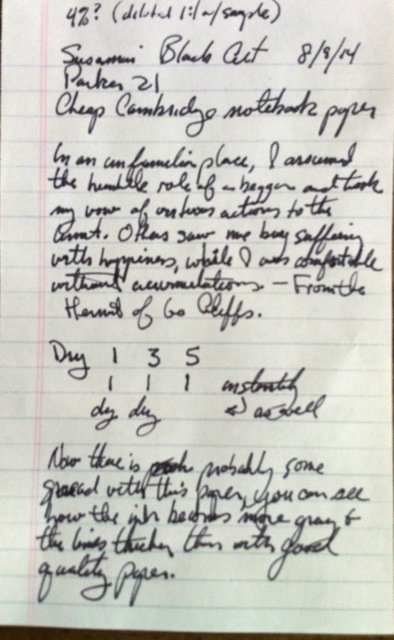 4%? (diluted 1:1 w/sample)
Susanni Black Act 8/9/14
Parker 21
Cheap Cambridge notebook paper
In an unfamiliar place, I assumed
the humble role of a beggar and took
my vow of virtuous actions to the
limit. Others saw me buy suffering
with happiness, while I was comfortable
without accumulations. — From the
Hermit of Go Cliffs.
Dry 1 3 5
1 1 1 instantly
dry dry as well
Now there is probably some
spread with this paper, you can see
how the ink becomes more gray &
the lines thicker than with good
quality paper.